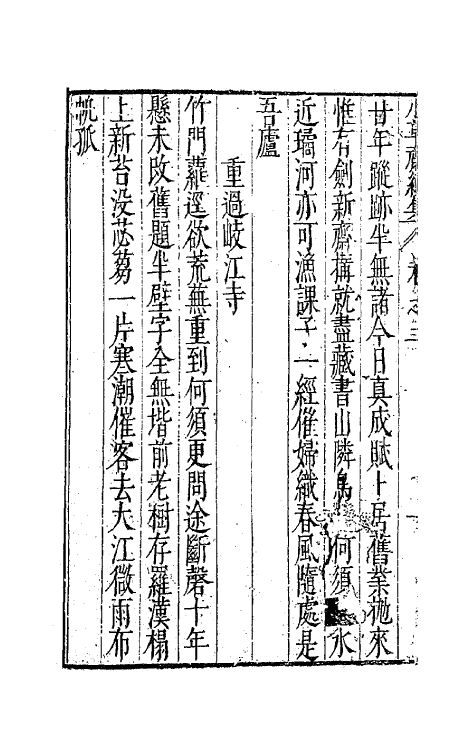 小草齋續集 卷之三
廿年蹤跡半無諸今日真成賦卜居舊業拋來
惟有劍新齋搆就盡藏書山隣鳥 何須 水
近璚河亦可漁課子一經催婦織春風隨處是
吾廬
重過岐江寺
竹門蘿逕欲荒蕪重到何須更問途斷磬十年
懸未改舊題半壁字全無堦前老樹存羅漢榻
上新苔没苾蒭一片寒潮催客去大江微雨布
帆孤